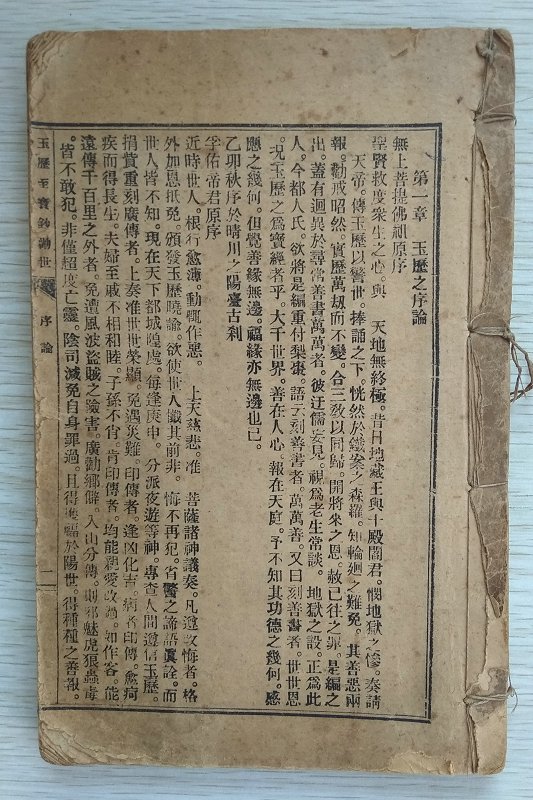 第一章　玉歷之序論
無上菩提佛祖原序
聖賢救度衆生之心。與　天地無終極。昔日地藏王與十殿閻君。憫地獄之慘。奏請
天帝。傳玉歷以警世。捧誦之下。恍然於鐵案之森羅。知輪廻之難免。其善惡兩
報。勸戒昭然。實歷萬劫而不變。合三敎以同歸。開將來之恩。赦已往之罪。是編之
出。蓋有迥異於尋常善書萬萬者。彼迂儒妄見。視爲老生常談。地獄之設。正爲此
人。今都人氏。欲將是編重付梨棗。語云刻善書者。萬萬善。又曰刻善書者。世世恩
。况玉歷之爲寶經者乎。大千世界。善在人心。報在天庭。予不知其功德之幾何。感
應之幾何。但覺善緣無邊。福緣亦無邊也已。
乙卯秋序於晴川之陽臺古刹
孚佑帝君原序
近時世人。根行愈薄。動輒作惡。　上天慈悲。准　菩薩諸神議奏。凡遵改悔者。格
外加恩抵免。頒發玉歷曉諭。欲使世人懺其前非。悔不再犯。省醫之諦語眞詮。而
世人皆不知。現在天下都城隍處。每逢庚申。分派夜遊等神。專查人間遵信玉歷。
捐貲重刻廣傳者。上奏准世世榮顯。免遇災難。印傳者。逢凶化吉。病者印傳。愈疴
疾而得長生。夫婦至戚不相和睦。子孫不肖。肯印傳者。均能和愛改過。如作客。能
遠傳千百里之外者。免遭風波盜賊之險害。廣勸鄉隣。入山分傳。則邪魅虎狼蟲毒
。皆不敢犯。非僅超度亡靈。陰司減免自身罪過。且得獲福於陽世。得種種之善報。
玉歷至寶鈔勸世　序論　一